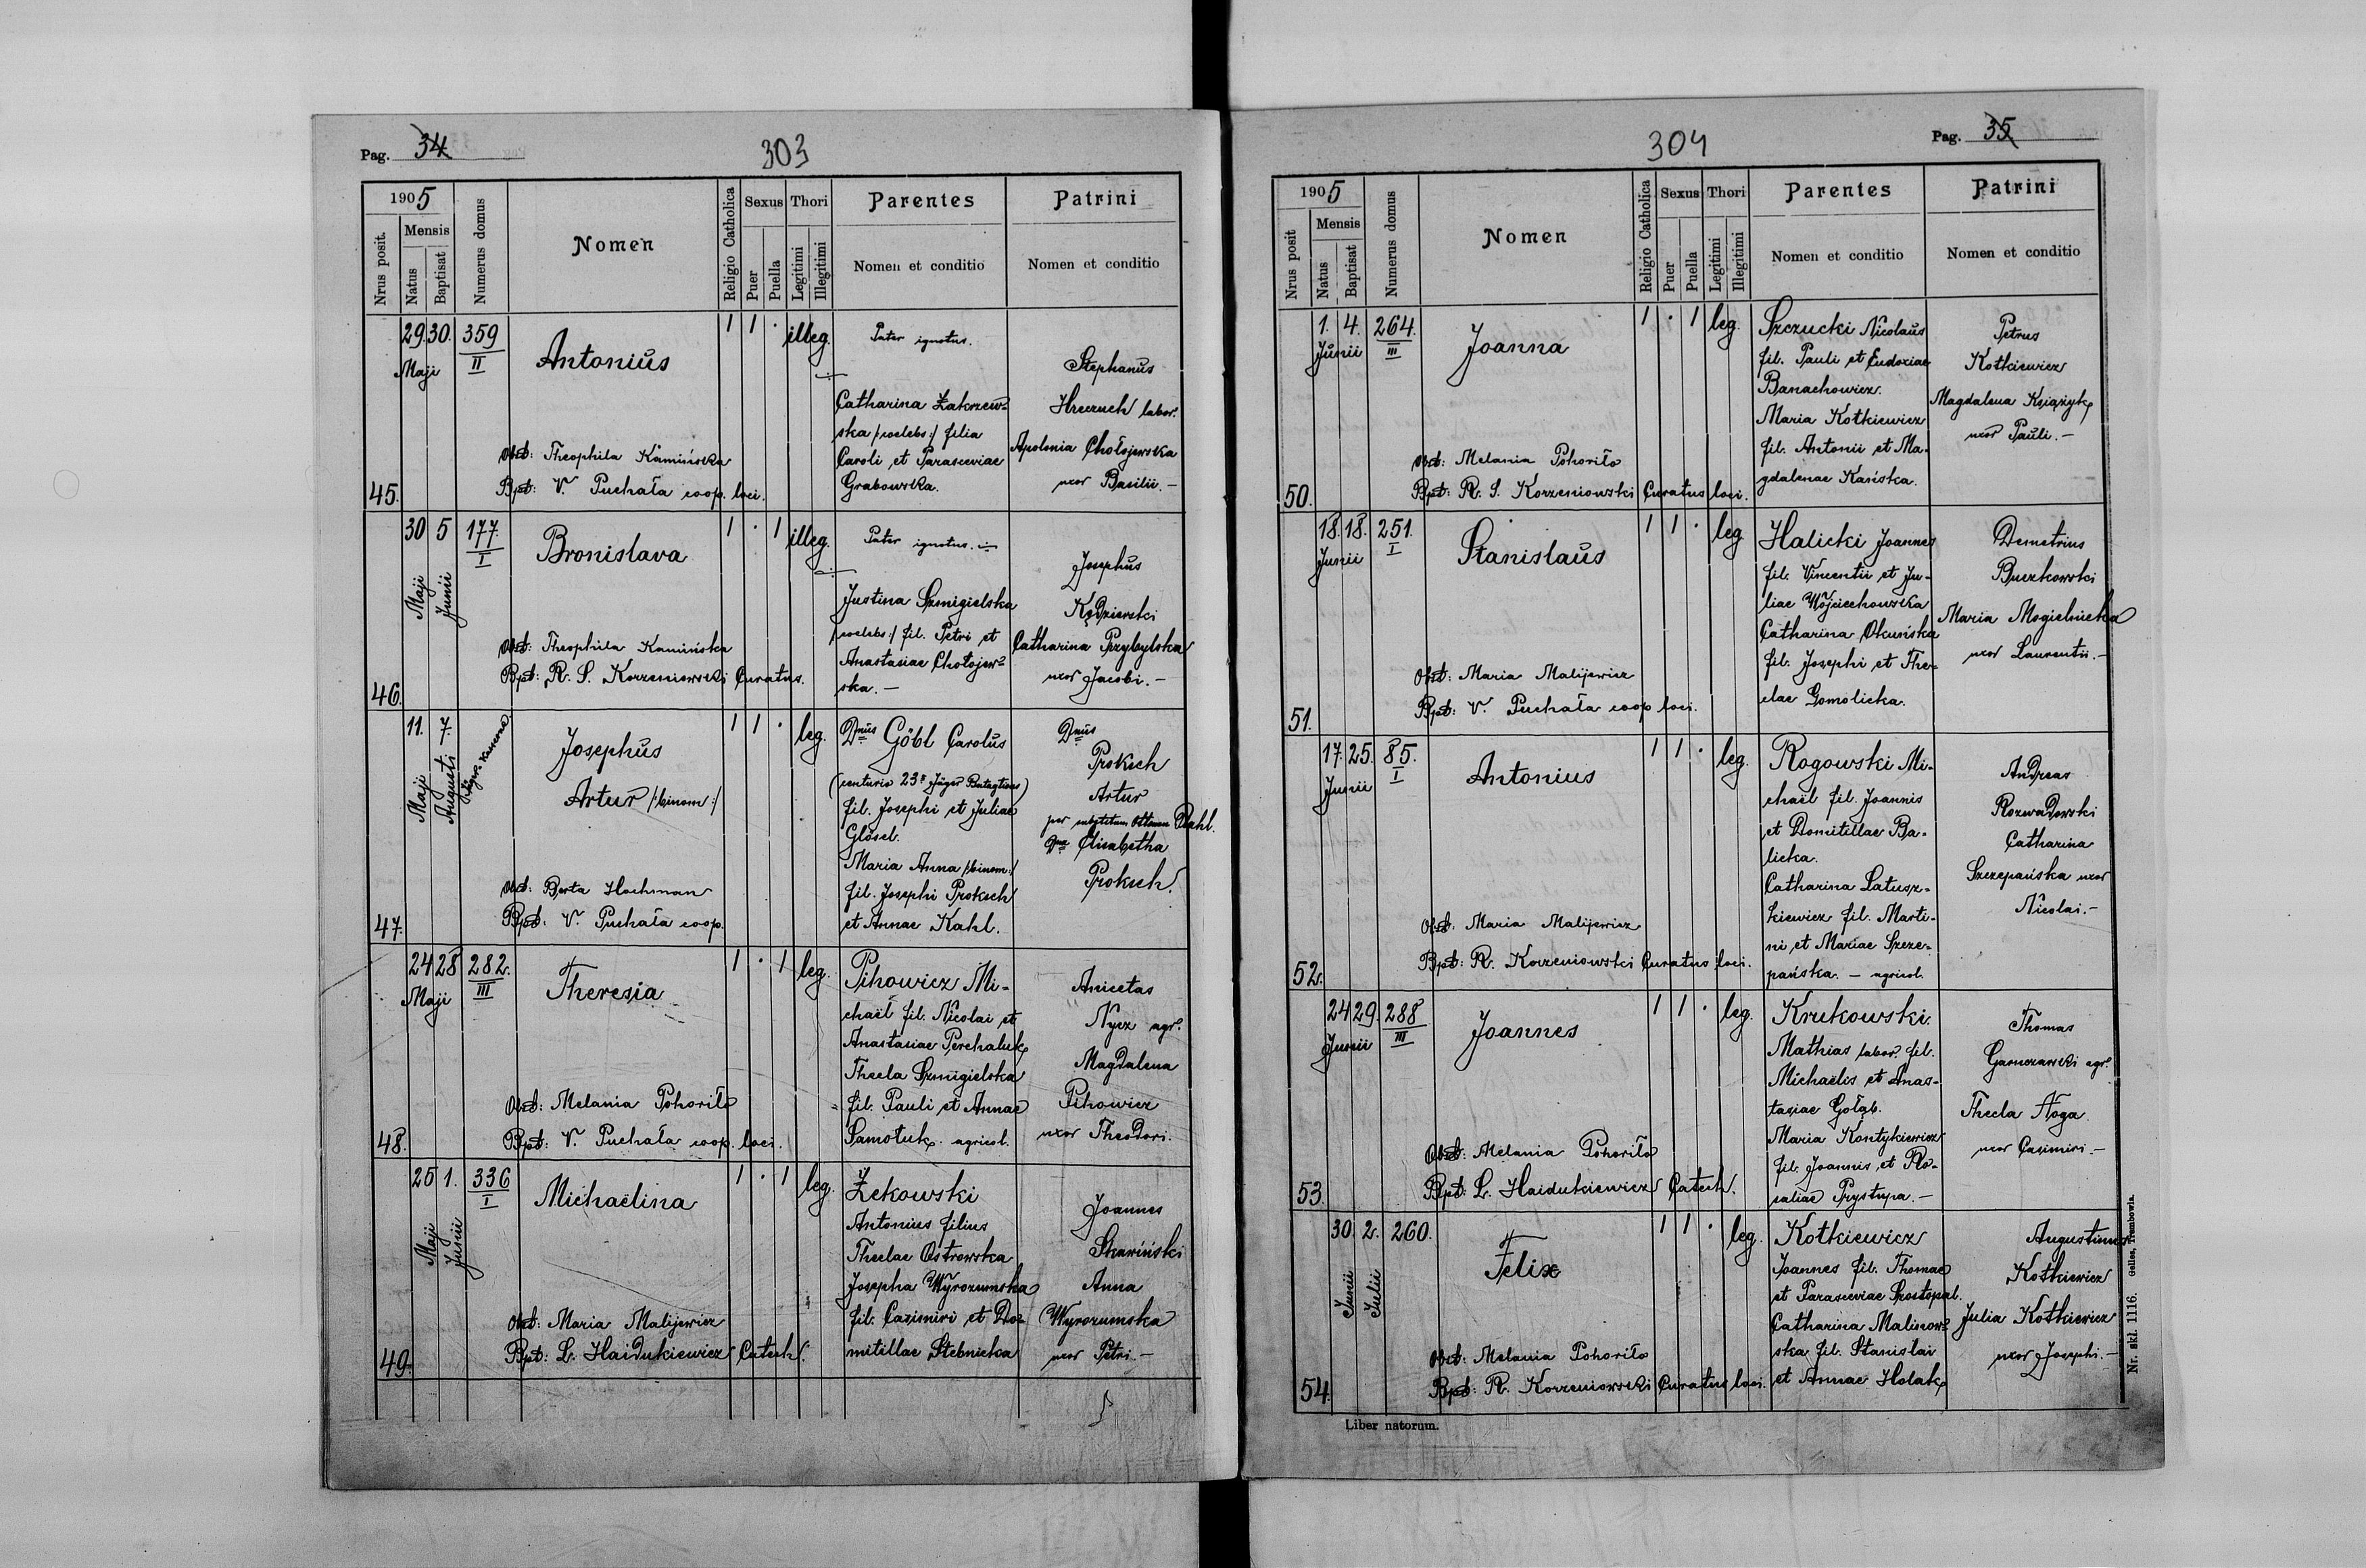 Pag. 34
303
1905
Nrus posit.
Mensis
Natus
Baptisat
Numerus domus
Nomen
Religio Catholica
Sexus
Puer
Puella
Thori
Legitimi
Illegitimi
Parentes
Nomen et conditio
Patrini
Nomen et conditio
45.
29. 30.
Maji
359
II
Antonius
Obst: Theophila Kamińska
Bpt: V. Puchała coop. loci.
1 1 · illeg.
Pater ignotus.
Catharina Zakrzew-
ska /:coelebs:/ filia
Caroli et Parasceviae
Grabowska.
Stephanus
Hreczuch labor.
Apolonia Chołojewska
uxor Basilii.-
46.
30 5
Maji
Junii
177.
I
Bronislava
Obst: Theophila Kamińska
Bpt: R. S. Korzeniowski Curatus.
1 · 1 illeg.
Pater ignotus.
Justina Szmigielska
/coelebs:/ fil. Petri et
Anastasiae Chołojew-
ska.-
Josephus
Kędzierski
Catharina Przybylska
uxor Jacobi.-
47.
11. 7.
Maji
Augusti
Jäger-Kaserne
Josephus
Artur /:binom:/
Obst: Berta Hochman
Bpt: V. Puchała coop.
1 1 · leg.
Dnus Göbl Carolus
fil. Josephi et Juliae
Glösel.
Maria Anna /:binom:/
fil. Josephi Proksch
et Annae Kahl.
Dnus
Proksch
Artur
Dna Elisabetha
Proksch.
48.
24 28
Maji
282.
III
Theresia
Obst: Melania Pohoriło
Bpt: V. Puchała coop. loci.
1 · 1 leg.
Pihowicz Mi-
chaël fil. Nicolai et
Anastasiae Perchaluk
Thecla Szmigielska
fil. Pauli et Annae
Samotuk. agricol.
Anicetas
Nycz agr.
Magdalena
Pihowicz
uxor Theodori.
49.
25 1.
Maji
Junii
336
I
Michaëlina
Obst: Maria Malijewicz
Bpt: L. Haidukiewicz Catech.
1 · 1 leg.
Żekowski
Antonius filius
Theclae Ostrowska
Josepha Wyrozumska
fil. Casimiri et Do-
mitillae Stebnicka
Joannes
Skawiński
Anna
Wyrozumska
uxor Petri.-
304
Pag. 35
1905
Nrus posit
Mensis
Natus
Baptisat
Numerus domus
Nomen
Religio Catholica
Sexus
Puer
Puella
Thori
Legitimi
Illegitimi
Parentes
Nomen et conditio
Patrini
Nomen et conditio
50.
1. 4.
Junii
264.
III
Joanna
Obst: Melania Pohoriło
Bpt: R. S. Korzeniowski Curatus loci.
1 · 1 leg.
Szczucki Nicolaus
fil. Pauli et Eudoxiae
Banachowicz.
Maria Kotkiewicz
fil. Antonii et Ma-
gdalenae Kańska.
Petrus
Kotkiewicz
Magdalena Książyk
uxor Pauli.-
51.
18. 18.
Junii
251.
I
Stanislaus
Obst: Maria Malijewicz
Bpt: V. Puchała coop loci.
1 1 · leg.
Halicki Joannes
fil. Vincentii et Ju-
liae Wojciechowska
Catharina Okuńska
fil. Josephi et The-
clae Gomolicka.
Demetrius
Buczkowski
Maria Mogielnicka
uxor Laurentii.-
52.
17. 25.
Junii
85.
I
Antonius
Obst: Maria Malijewicz
Bpt: R. Korzeniowski Curatus loci.
1 1 · leg.
Rogowski Mi-
chaël fil. Joannis
et Domitillae Ba-
licka.
Catharina Latusz-
kiewicz fil. Marti-
ni et Mariae Szcze-
pańska. - agricol.
Andreas
Rozwadowski
Catharina
Szczepańska uxor
Nicolai.-
53.
24 29.
Junii
288
III
Joannes
Obst: Melania Pohoriło
Bpt: L. Haidukiewicz Catech.
1 1 · leg.
Krukowski
Mathias labor. fil.
Michaëlis et Anas-
tasiae Gołąb.
Maria Kontykiewicz
fil. Joannis et Ro-
saliae Prystupa.-
Thomas
Garnczarski agr.
Thecla Noga
uxor Casimiri.-
54.
30. 2.
Junii
Julii
260.
Felix
Obst: Melania Pohoriło
Bpt: R. Korzeniowski Curatus loci.
1 1 · leg.
Kotkiewicz
Joannes fil. Thomae
et Parasceviae Szostopal.
Catharina Malinow-
ska fil. Stanislai
et Annae Holak
Augustinus
Kotkiewicz
Julia Kotkiewicz
uxor Josephi.-
Liber natorum.
Nr. skl. 1116. Gelles, Trembowla.